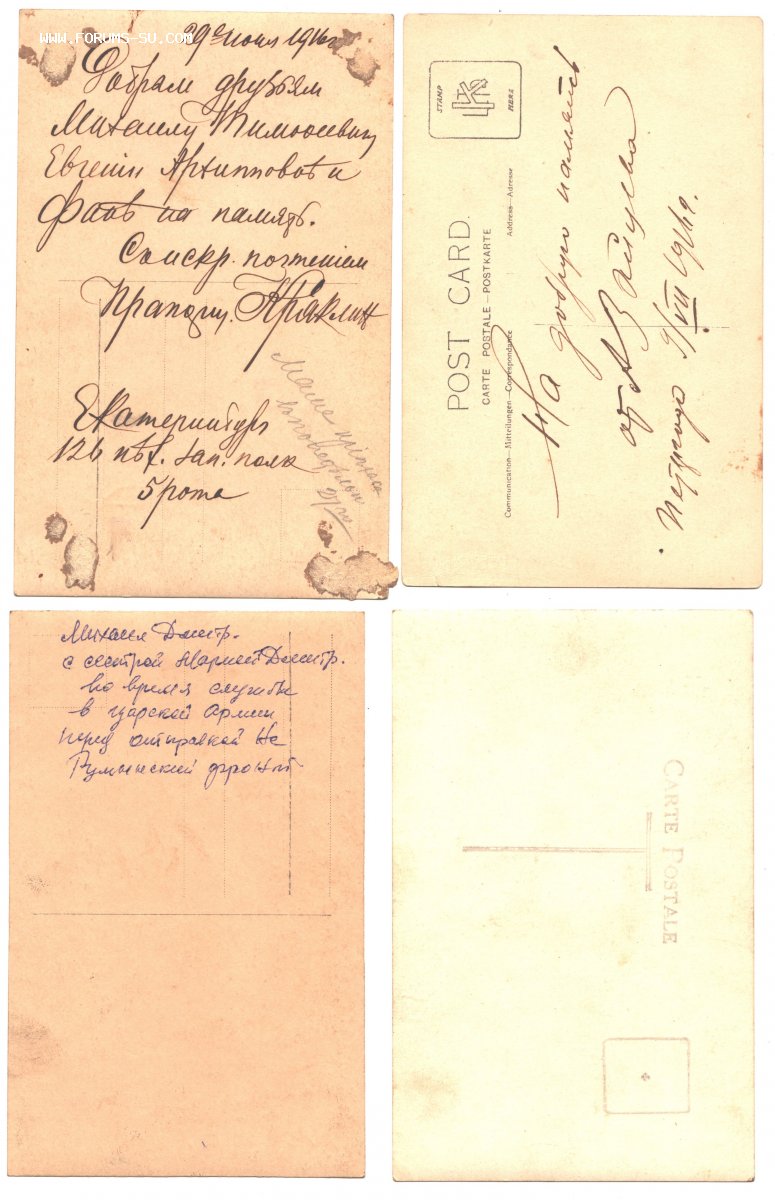 WWW.FORUMS-SU.COM
29го июля 1916 г.
Добрым друзьям
Михаилу Тимофеевичу
Евгении Архипповнѣ и
на память.
Съ искр. почтением
Прапорщ.
Екатеринбургъ
126 пѣх. зап. полк
5 рота
Маше
STAMP
HERE
POST CARD.
CARTE POSTALE — POSTKARTE
Address — Adresse
Communication — Mitteilungen — Correspondance
На добрую память
от А Зайцева
Петроград 9/VII 1916 г.
Михаил Дмитр.
с сестрой Марией Дмитр.
во время службы
в царской Армии
перед отправкой на
Румынский фронт
CARTE POSTALE